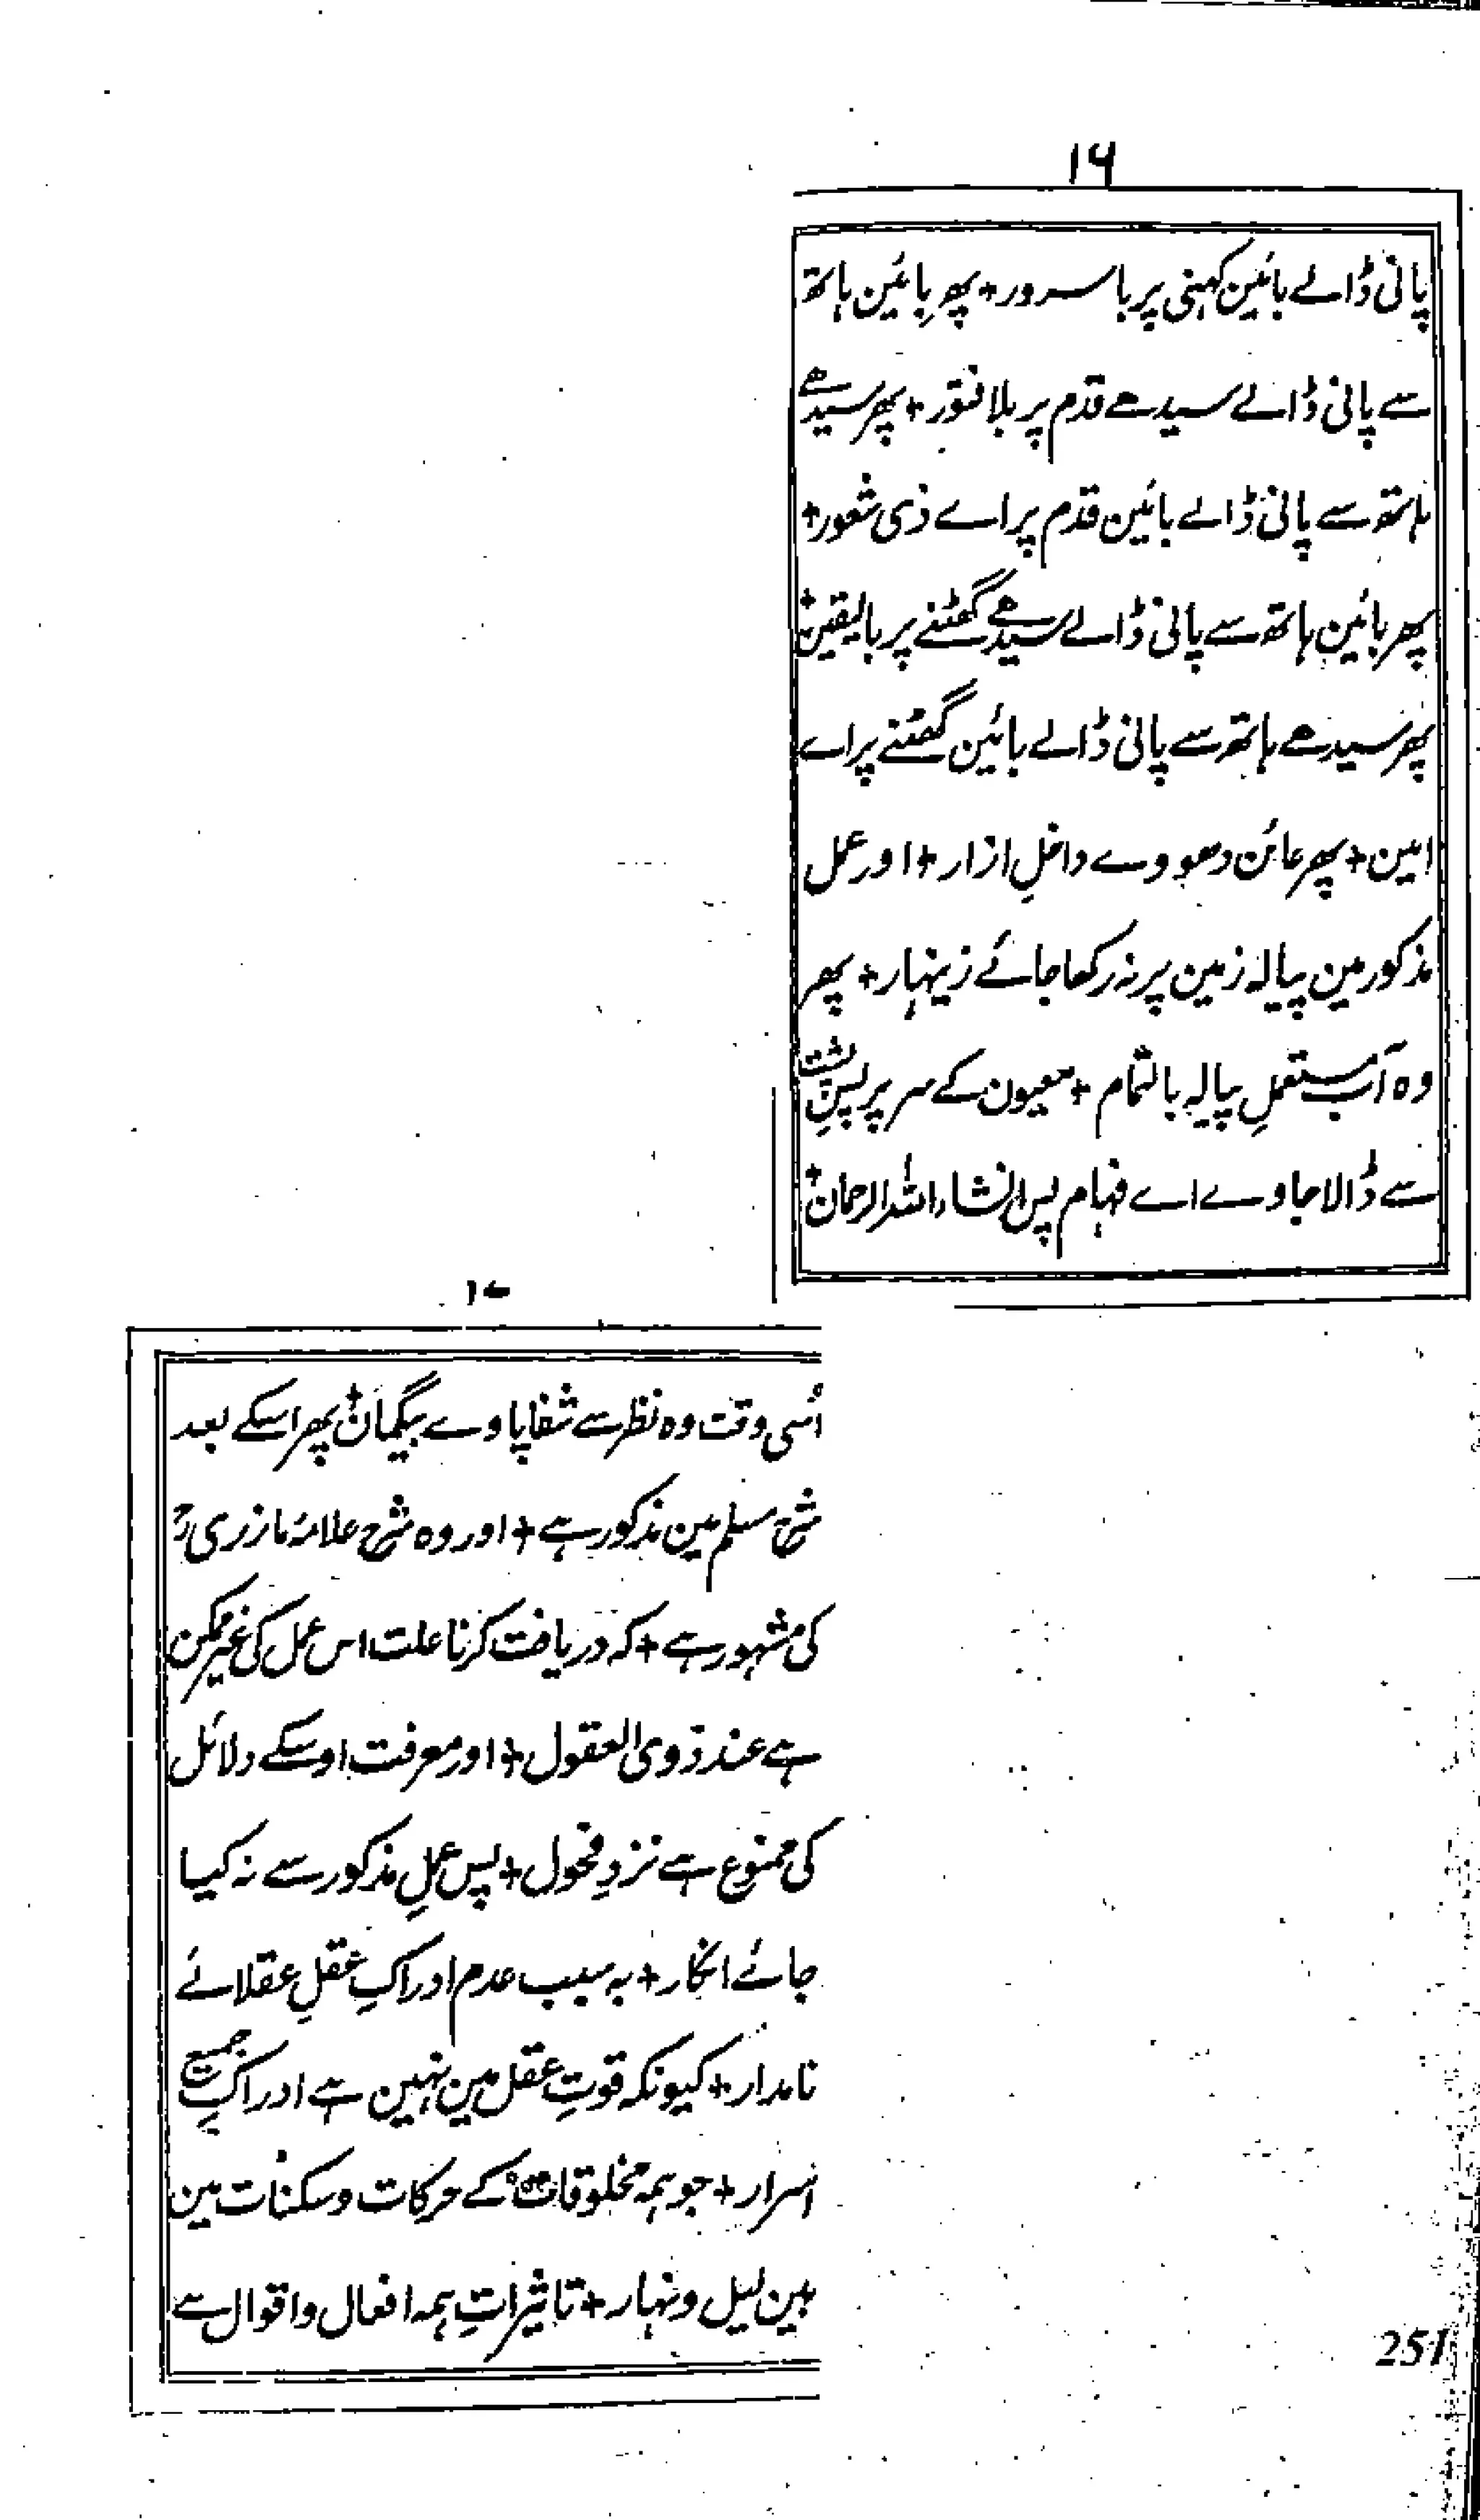 ۱۶
پانی ڈالے بائین کہنی پر باسرور + پھر بائین ہاتھ
سے پانی ڈالے سیدھے قدم پر بلا فتور + پھر سیدھے
ہاتھ سے پانی ڈالے بائین قدم پر اے ذی شعور +
پھر بائین ہاتھ سے پانی ڈالے سیدھے گھٹنے پر بالیقین +
پھر سیدھے ہاتھ سے پانی ڈالے بائین گھٹنے پر اے
امین + پھر عائن دھووے داخلِ ازار + اور عمل
مذکور مین پیالہ زمین پر نہ رکھا جائے زینہار + پھر
وہ آب مستعملِ پیالہ بالتمام + معیون کے سر پر پسِ پشت
سے ڈالا جاوے اے فہام پس انشاء اللہ الرحمان +
۱۷
اُسی وقت وہ نظر سے شفا پاوے بیگمان + پھر اسکے بعد
شرح مسلم مین مذکور ہے + اور وہ شرح علامۂ مازری رح
کی مشہور ہے + کہ دریافت کرنا علت اس عمل کی غیر ممکن
ہے عند ذوی العقول + اور معرفت اوسکے دلائل
کی ممنوع ہے نزدِ فحول + پس عملِ مذکور سے نہ کیا
جائے انکار + بہ سبب عدم ادراکِ عقلِ عقلائے
نامدار + کیونکہ قوتِ عقل مین نہین ہے ادراکِ جمیع
اسرار + جو ہمہ مخلوقات کے حرکات و سکنات مین
بین لیل و نہار + تاثیراتِ ہمہ افعال و اقوال سے
251